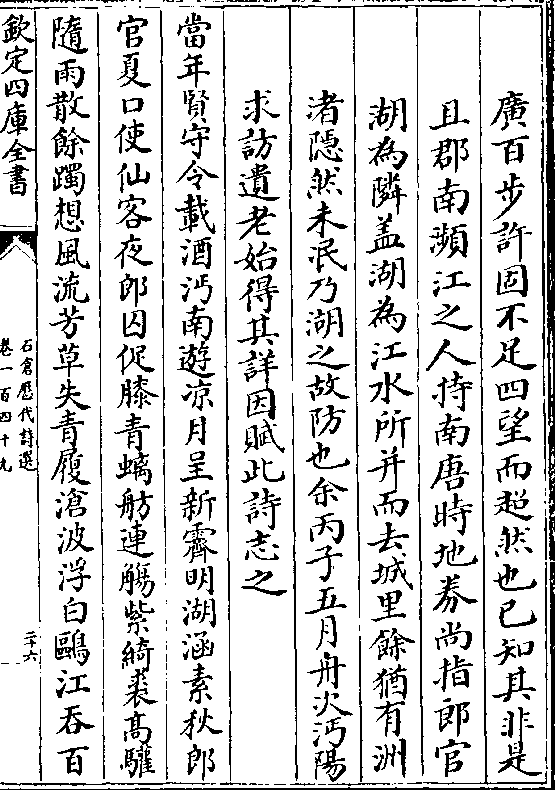 廣百步許固不足四望而超然也已知其非是
且郡南瀕江之人持南唐時地券尚指郎官
湖為隣盖湖為江水所并而去城里餘猶有洲
渚隱然未泯乃湖之故防也余丙子五月舟次沔陽
求訪遺老始得其詳因賦此詩志之
當年賢守令載酒沔南遊凉月呈新霽明湖涵素秋郎
官夏口使仙客夜郎囚促膝青螭舫連觴紫綺裘高驩
隨雨散餘躅想風流芳草失青履滄波浮白鷗江吞百
欽定四庫全書
石倉歷代詩選
卷一百四十九
二十六